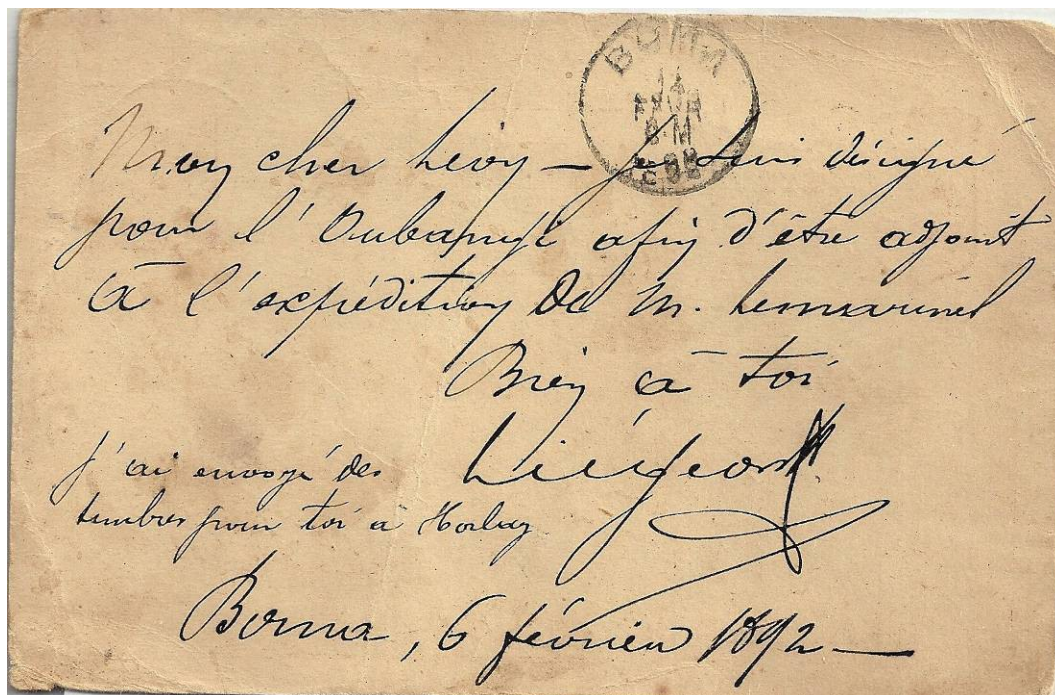 BOMA
14
FEVR
8-M
1892
Mon cher Levy – Je suis désigné
pour l'Oubangi afin d'être adjoint
à l'expédition de M. Lemarinel
Bien à toi
Liégeois
J'ai envoyé des
timbres pour toi a
Boma, 6 février 1892 –